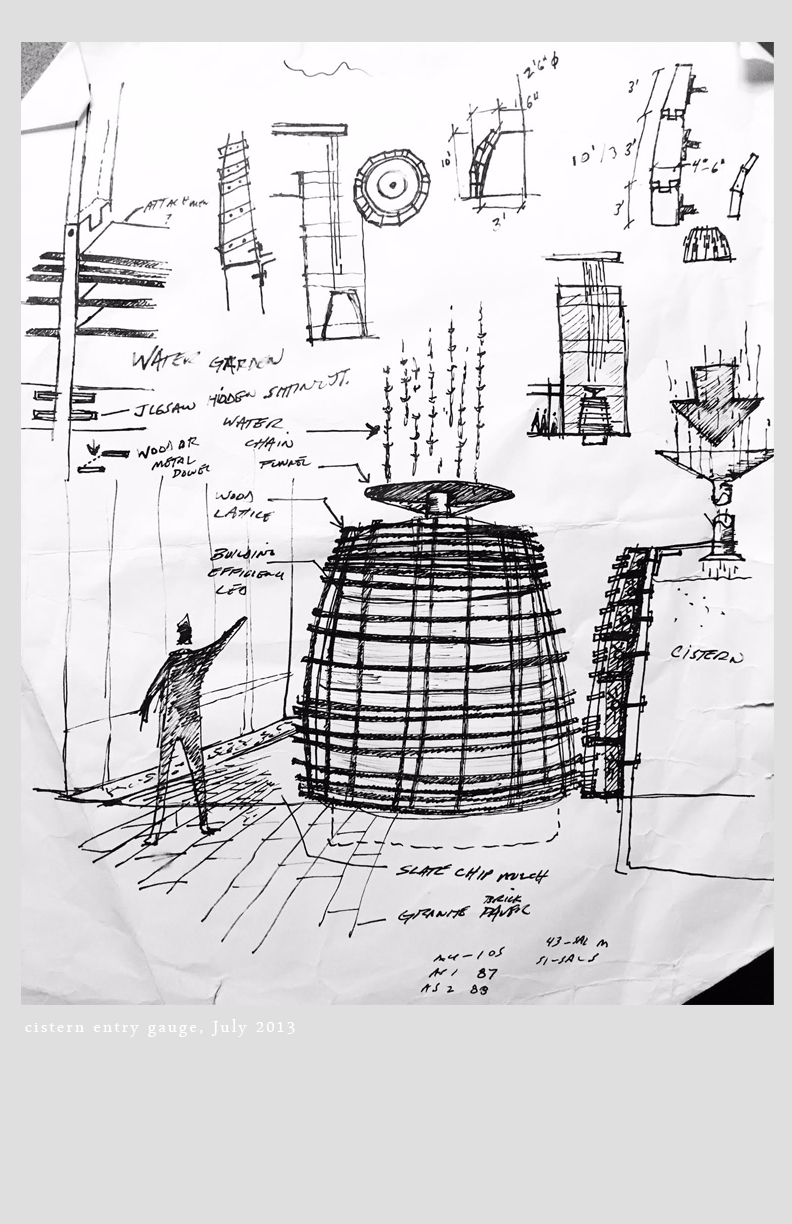 2'6" φ
6"
10'
3'
3'
10'/3
3'
4"-6"
3'
ATTACHMENT
?
WATER GARDEN
JIGSAW HIDDEN
WATER
CHAIN
WOOD OR
METAL
DOWEL
FUNNEL
WOOD
LATTICE
BUILDING
EFFICIENCY
LED
CISTERN
SLATE CHIP MULCH
BRICK
GRANITE PAVER
105
87
AS 2 88
43-GAL M
51-GAL S
cistern entry gauge, July 2013